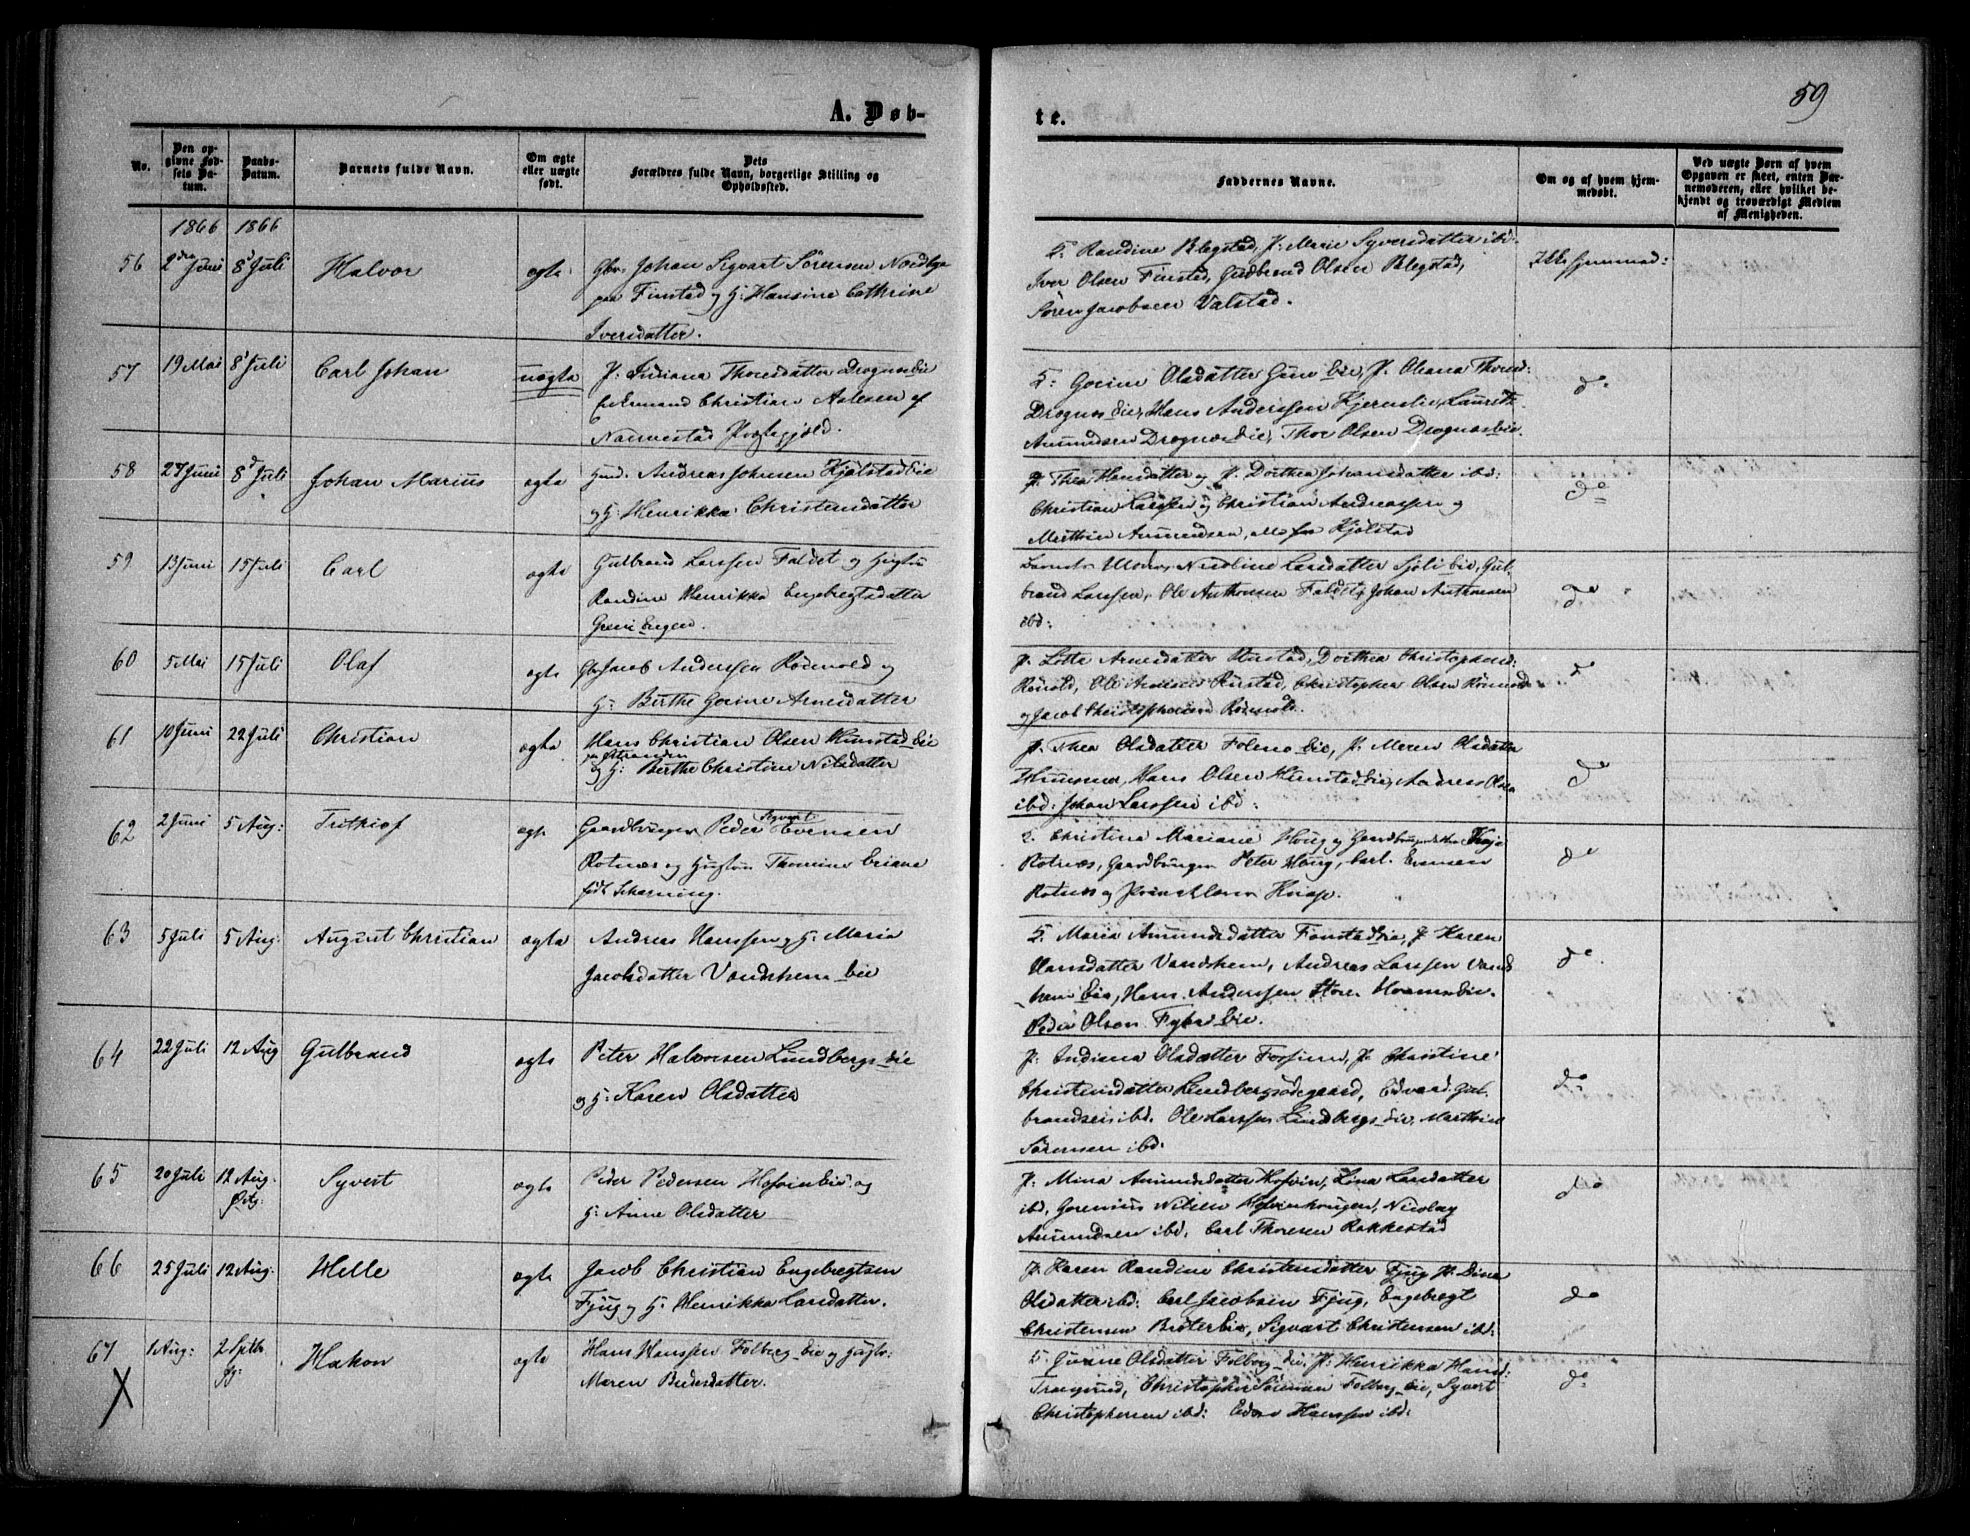 59
A. Døb-
te.
No.
Den op-
givne Fød-
sels Da-
tum.
Daabs-
Datum.
Barnets fulde Navn.
Om ægte
eller uægte
født.
Dets
Forældres fulde Navn, borgerlige Stilling og
Opholdssted.
Faddernes Navne.
Om og af hvem hjem-
medøbt.
Ved uægte Børn af hvem
Opgaven er skeet, enten Bar-
nemoderen, eller hvilket be-
kjendt og troværdigt Medlem
af Menigheden.
1866 1866
56 2den Juni 8d Juli Halvor ægte Gbr. Johan Sigvart Sörensen Nordbye
paa Finstad og H: Hansine Cathrine
Iversdatter.
G: Randine Blegstad, P: Marie Syversdatter ibi-
Iver Olsen Finstad, Gudbrand Olsen Blegstad,
Sören Jacobsen Valstad.
Ikke hjemmed:
57 19 Mai 8d Juli Carl Johan uægte P: Indiana Thoresdatter Drognes Eie
Christian Aslesen af
Nannestad Præstegjeld.
G: Gorine Olsdatter Eie, P: Oleana Thoresd:
Drognes Eie, Hans Anderssen Kjerulie, Laurits
Amundsen Drognes Eie, Thor Olsen Drognes Eie.
do
58 27 Juni 8d Juli Johan Marius ægte Huusmd. Andreas Johnsen Kjølstad Eie
og H: Henrikka Christensdatter
P: Thea Hansdatter og P: Dorthea Johansdatter ibd:
Christian Larssen og Christian Andreassen og
Marthin Amundsen, alle fra Kjølstad
do
59 13 Juni 15 Juli Carl ægte Gulbrand Larssen Faldet og Hustru
Randine Henrikka Engebregtsdatter
Grøni Engen.
Barnets Moder, Nicoline Larsdatter Eie, Gul-
brand Larssen, Ole Anthonsen Faldet, Johan Anthonsen
ibd:
do
60 5 Mai 15 Juli Olaf ægte Gbr. Jacob Anderssen Rödnold og
H: Berthe Gorine Arnesdatter
P: Lotte Arnesdatter Rustad, Dorthea Christophersd:
Rönold, Ole Arnesen Rustad, Christopher Olsen Rönnold
og Jacob Christophersen Rönnold.
do
61 10 Juni 22 Juli Christian ægte Hans Christian Olsen Hunstad Eie
og H: Berthe Christine Nilsdatter
P: Thea Olsdatter Eie, P: Maren Olsdatter
Hans Olsen Hunstad Eie, Andreas Olsen
ibd: Johan Larssen ibd:
do
62 2 Juni 5 Aug: Frithiof ægte Gaardbruger Peder Syvert Evensen
Rotnæs og Hustru Thomine Eriane
født Scharning.
G: Christine Mariane Houg og Gaardbrugerdatter
Rotnæs, Gaardbruger Peter Houg, Carl Evensen
Rotnæs og
do
63 5 Juli 5 Aug. August Christian ægte Andreas Hanssen og H: Maria
Jacobsdatter Vandshem Eie
G: Maria Amundsdatter Eie, P: Karen
Hansdatter Vandshem, Andreas Larssen Vands
hem Eie, Hans Anderssen Store Eie.
Peder Olsen Eie.
do
64 22 Juli 12 Aug Gulbrand ægte Peter Halvorsen Lundbergs Eie
og H: Karen Olsdatter
P: Indiana Olsdatter Fossum, P: Christine
Christensdatter Lundbergsødegaard, Edvard Gul-
brandsen ibd. Ole Larssen Lundbergs Eie, Marthin
Sörensen ibd:
do
65 20 Juli 12 Aug. Syvert ægte Peder Pedersen Hofvin Eie og
H: Anne Olsdatter
P: Mina Amundsdatter Hofvin, Lina Larsdatter
ibd, Gorenius Nilsen Hofvinhougen, Nicolay
Amundsen ibd. Carl Thoresen Rakkestad
do
66 25 Juli 12 Aug. Helle ægte Jacob Christian Engebregtsen
Fjug og H: Henrikka Larsdatter.
P: Karen Randine Christensdatter Fjug, P: Dina
Olsdatter ibd: Carl Jacobsen Fjug, Engebregt
Christensen Eie, Sigvart Christensen ibd:
do
67 1 Aug: 2 Septb. Hakon ægte Hans Hanssen Folberg Eie og
Maren Pedersdatter.
G: Olsdatter Folberg Eie, P: Henrikka Hansd:
Christopher Sörensen Folberg Eie, Syvert
Christophersen ibd: Hanssen ibd:
do
X